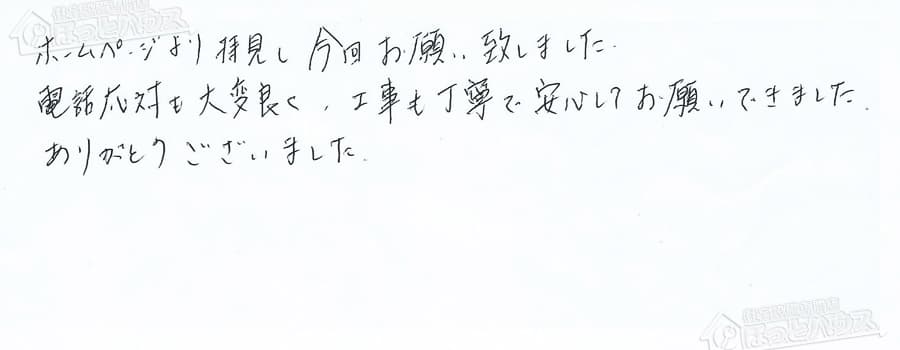 ホームページより拝見し今回お願い致しました.
電話応対も大変良く、工事も丁寧で安心してお願いできました.
ありがとうございました.
ほっとハウス
ほっとハウス